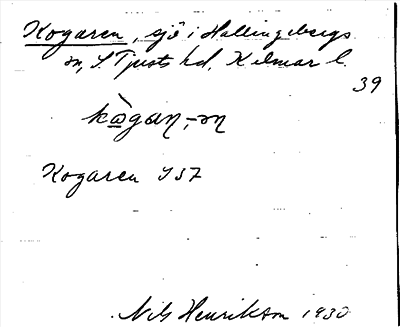 Kogaren, sjö i Hallingebergs
sn, S. Tjusts hd, Kalmar l.
39
kògan, -n
Kogaren J 57
Nils Henrikson 1930